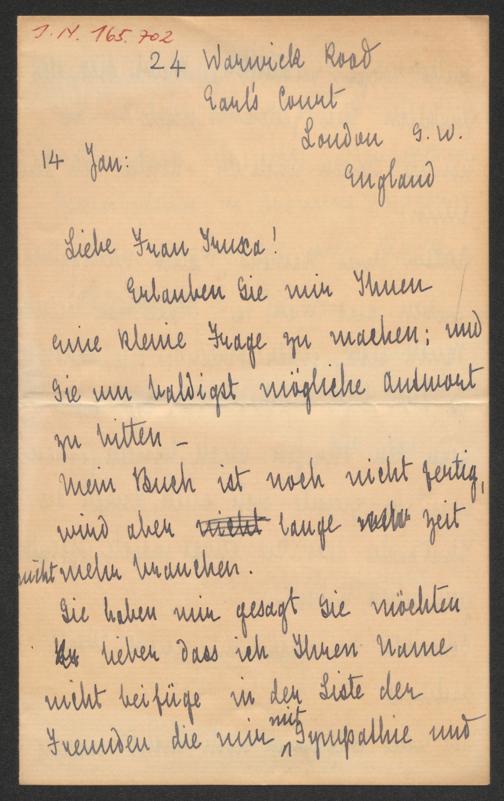 J. N. 165.702
24 Warwick Road
Earl's Court
London S. W.
England
14 Jan:
Liebe Frau Truxa!
Erlauben Sie mir Ihnen
eine kleine Frage zu machen; und
Sie um baldigst mögliche Antwort
zu bitten –
Mein Buch ist noch nicht fertig,
wird aber nicht lange Zeit
nicht mehr brauchen.
Sie haben mir gesagt Sie möchten
lieber dass ich Ihren Name
nicht beifüge in der Liste der
Fremden die mir mit Sympathie und